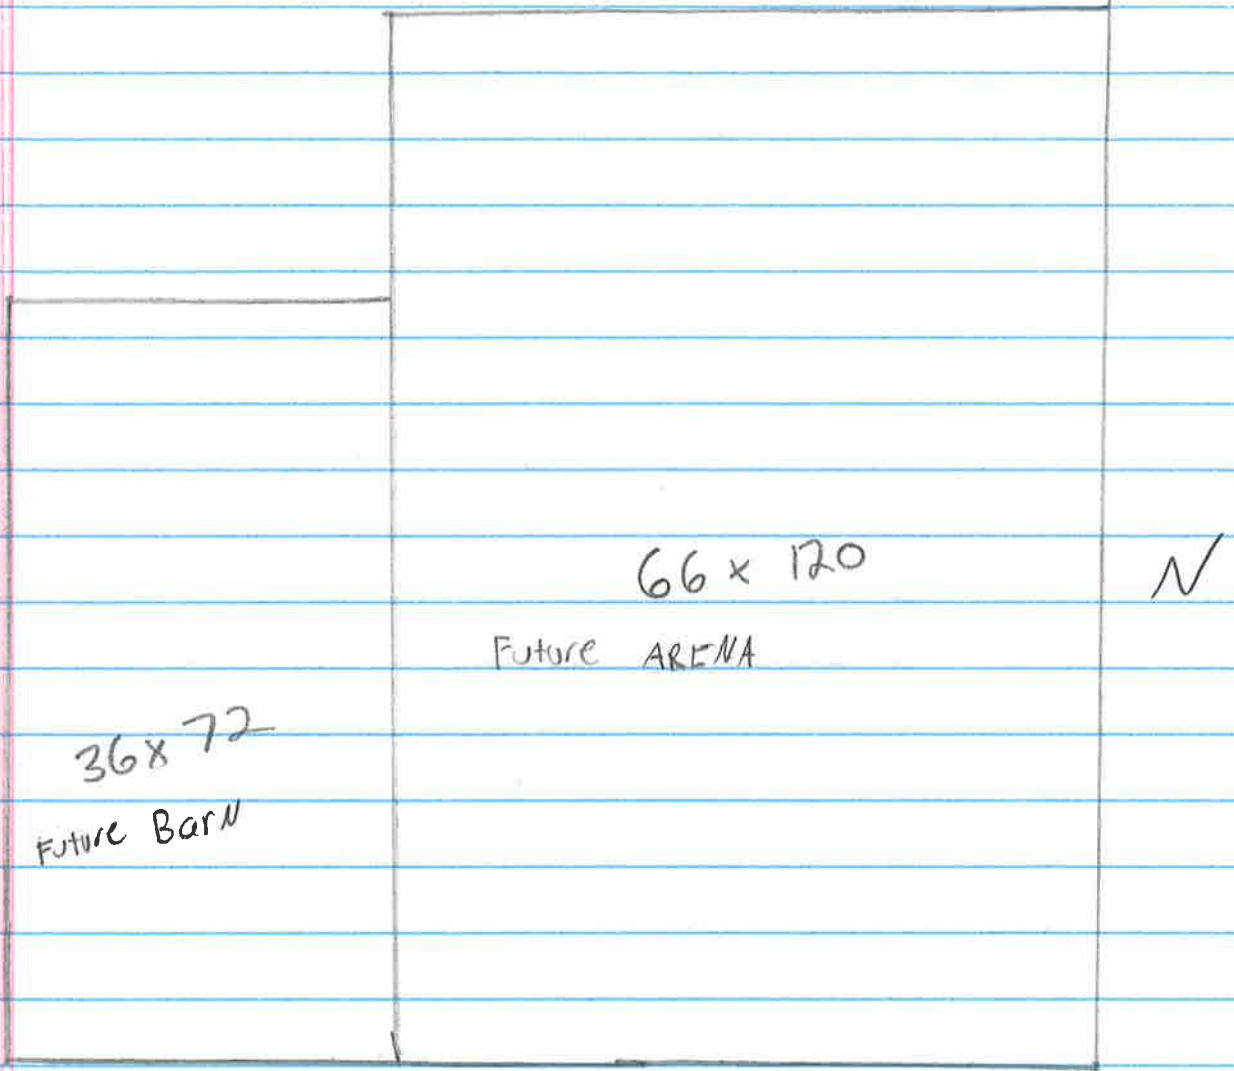 66 x 120
Future ARENA
N
36 x 72
Future BarN